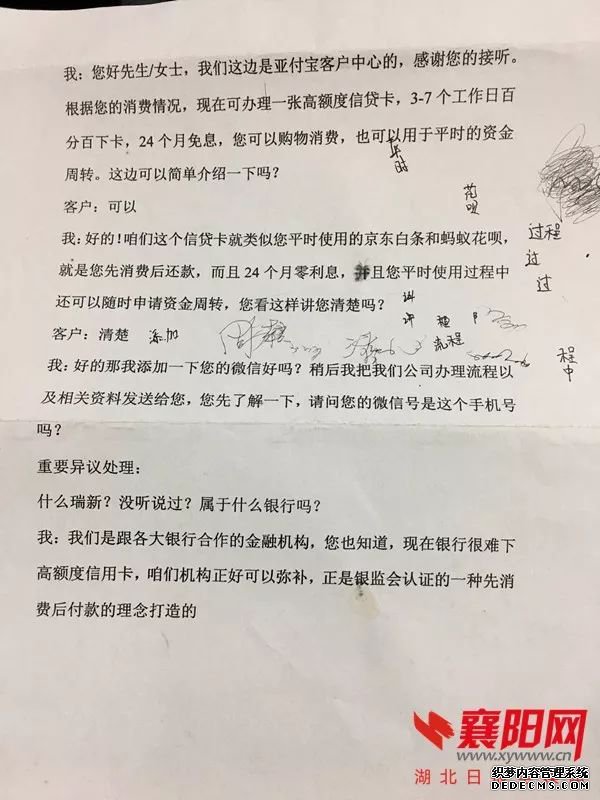 我：您好先生/女士，我们这边是亚付宝客户中心的，感谢您的接听。
根据您的消费情况，现在可办理一张高额度信贷卡，3-7 个工作日百
分百下卡，24 个月免息，您可以购物消费，也可以用于平时的资金
周转。这边可以简单介绍一下吗？
时
花
呗
客户：可以
我：好的！咱们这个信贷卡就类似您平时使用的京东白条和蚂蚁花呗，
过程
过
过
就是您先消费后还款，而且 24 个月零利息，并且您平时使用过程中
还可以随时申请资金周转，您看这样讲您清楚吗？
客户：清楚 添加
流程
程
中
我：好的那我添加一下您的微信好吗？稍后我把我们公司办理流程以
及相关资料发送给您，您先了解一下，请问您的微信号是这个手机号
吗？
重要异议处理：
什么瑞新？没听说过？属于什么银行吗？
我：我们是跟各大银行合作的金融机构，您也知道，现在银行很难下
高额度信用卡，咱们机构正好可以弥补，正是银监会认证的一种先消
费后付款的理念打造的
襄阳网
www.xywww.cn
湖北日
织梦内容管理系统
DEDECMS.COM